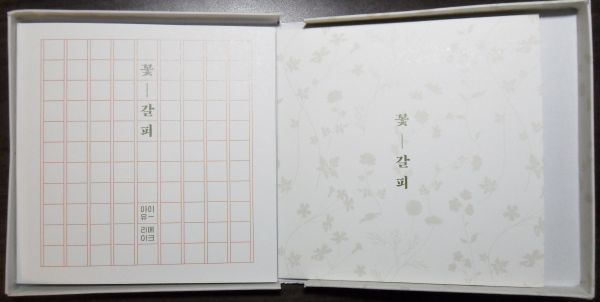 꽃—갈피
아이
유—
리메
이크
꽃—갈피